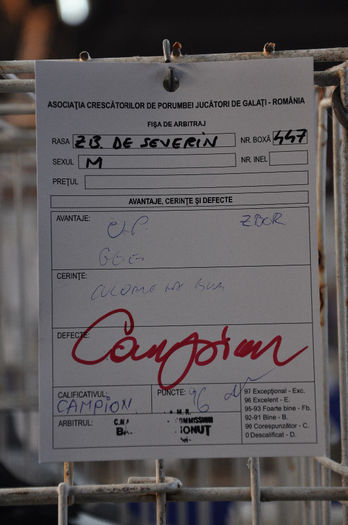 ASOCIAȚIA CRESCĂTORILOR DE PORUMBEI JUCĂTORI DE GALAȚI - ROMÂNIA
FIȘA DE ARBITRAJ
RASA ZB. DE SEVERIN NR. BOXĂ 447
SEXUL M NR. INEL
PREȚUL
AVANTAJE, CERINȚE ȘI DEFECTE
AVANTAJE: CAP ZBOR
CERINȚE:
DEFECTE:
Campion
CALIFICATIVUL: CAMPION
PUNCTE: 96
ARBITRUL:
97 Excepțional - Exc.
96 Excelent - E.
95-93 Foarte bine - Fb.
92-91 Bine - B.
90 Corespunzător - C.
0 Descalificat - D.